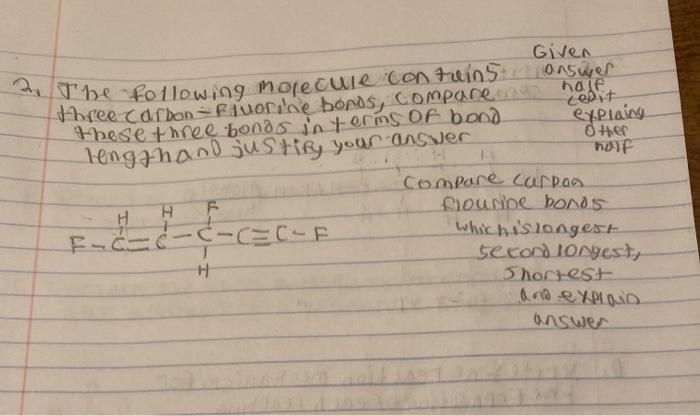 2, The following molecule contains
three carbon-Fluorine bonds, compare
these three bonds in terms OF bond
length and justify your answer
Given
answer
half
cedit
explaing
other
half
compare carbon
flourine bonds
which is longest
second longest,
shortest
and explain
answer
H H F
F-C=C-C-C≡C-F
H